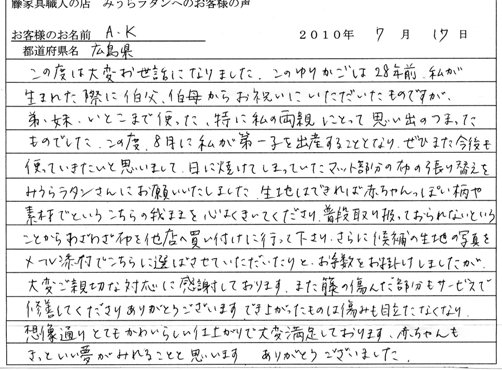 籐家具職人の店　みうらラタンへのお客様の声
お客様のお名前　A.K　２０１０年　７　月　17日
都道府県名　広島県
この度は大変お世話になりました。このゆりかごは28年前、私が
生まれた際に伯父、伯母からお祝いにいただいたものですが、
弟、妹、いとこまで使った、特に私の両親にとって思い出のつまった
ものでした。この度、8月に私が第一子を出産することとなり、ぜひまた今後も
使っていきたいと思いまして、日に焼けてしまっていたマット部分の布の張り替えを
みうらラタンさんにお願いいたしました。生地はできれば赤ちゃんっぽい柄や
素材でというこちらの我ままを心よくきいてくださり、普段取り扱っておられないという
ことからわざわざ布を他店へ買い付けに行って下さり、さらに候補の生地の写真を
メール添付でこちらに選ばさせていただいたりと、お手数をお掛けしましたが、
大変ご親切な対応に感謝しております。また籐の傷んだ部分もサービスで
修善してくださりありがとうございます。でき上がったものは傷みも目立たなくなり、
想像通りとてもかわいらしい仕上がりで大変満足しております。赤ちゃんも
きっといい夢がみれることと思います　ありがとうございました。